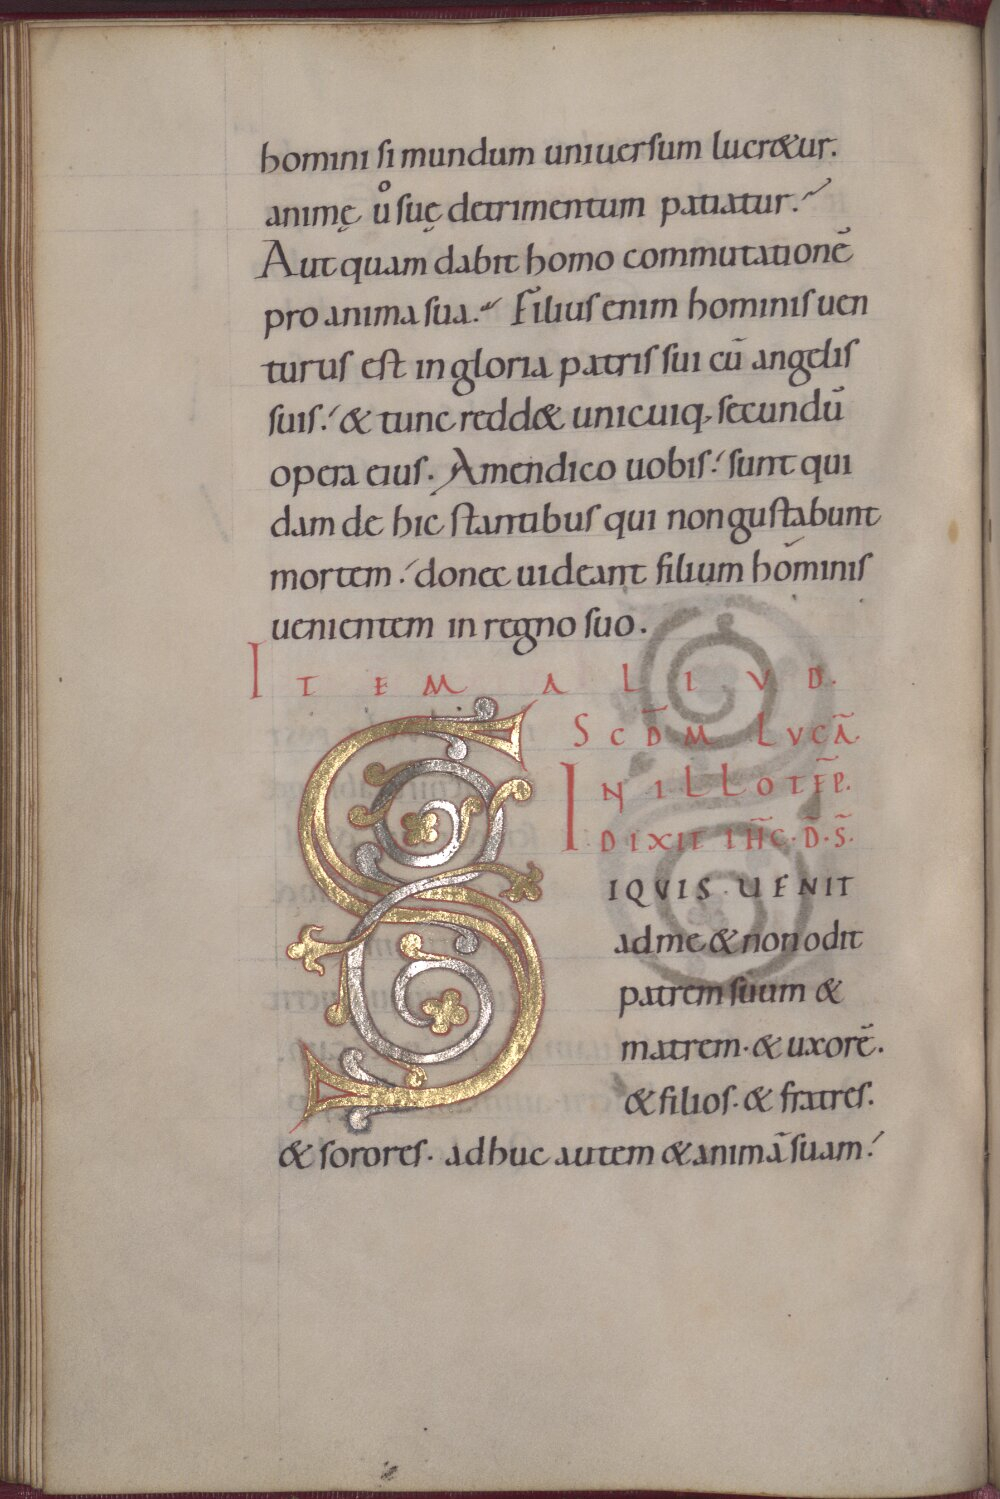 homini si mundum uniuersum lucr&ur.
animę uͦ suę detrimentum patiatur.
Aut quam dabit homo commutationē
pro anima sua. Filius enim hominis uen
turus est in gloria patris sui cū angelis
suis. & tunc redd& unicuiq, secundū
opera eius. Amen dico uobis. sunt qui
dam de hic stantibus qui non gustabunt
mortem. donec uideant filium hominis
uenientem in regno suo.
ITEM ALIVD.
SCDM̄ LVCĀ.
IN ILLO TĒP.
DIXIT IH̄C. D̄. S̄.
SIQVIS UENIT
ad me & non odit
patrem suum &
matrem. & uxorē.
& filios. & fratres.
& sorores. adhuc autem & animā suam.